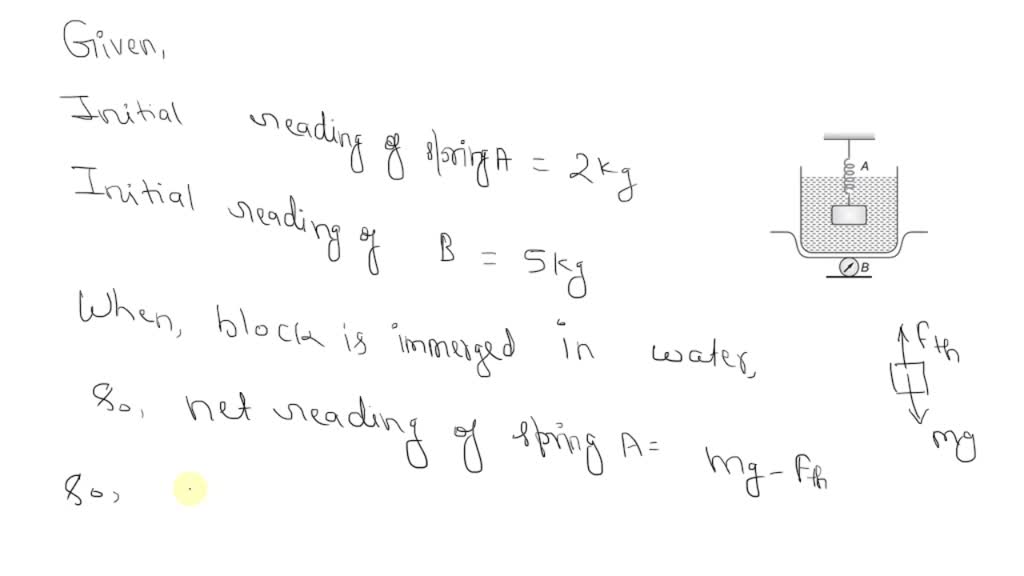 Given,
Initial reading of spring A = 2kg
Initial reading of B = 5kg
When, block is immerged in water,
So, net reading of spring A = mg - Fth
So,
A
B
Fth
mg